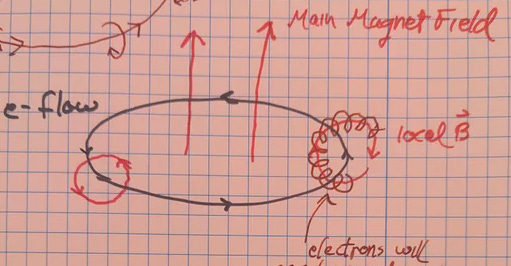 Main Magnet Field
e-flow
local B⃗
electrons will